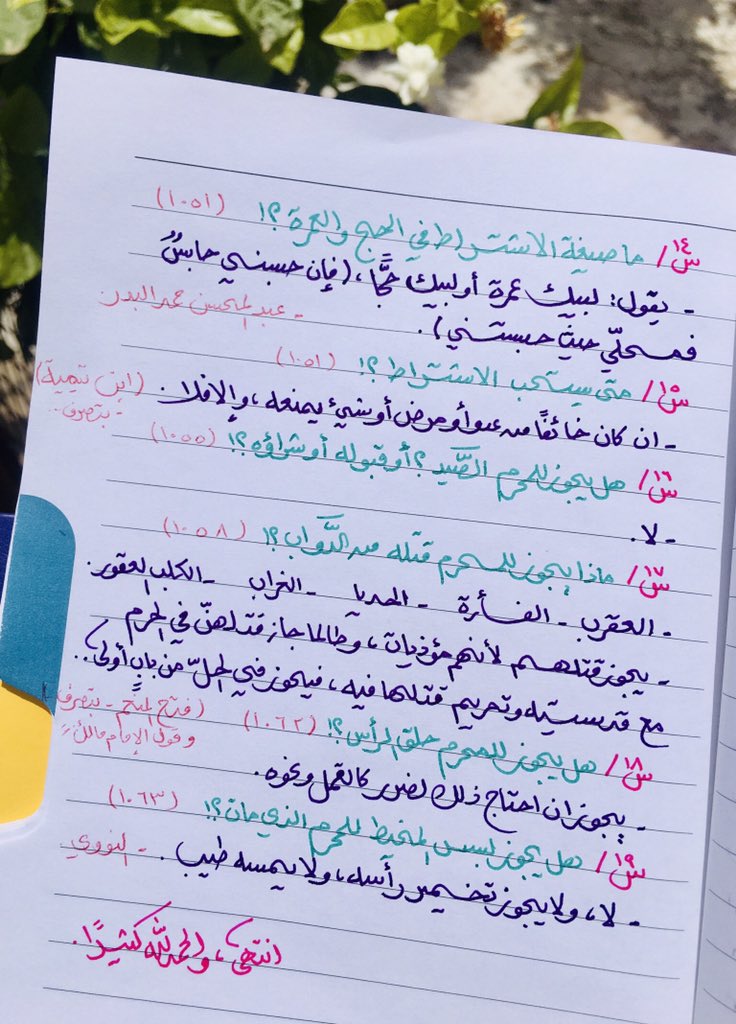 س١٤/ ما صيغة الاشتراط في الحج والعمرة؟! (١٠٥١)
- يقول: لبيك عمرة أو لبيك حجًّا، (فإن حبسني حابسٌ
فمحلّي حيث حبستني).
- عبد المحسن حمد البدر
س١٥/ متى يستحب الاشتراط؟! (١٠٥١)
- ان كان خائفًا من عدو أو مرض أو شيء يمنعه، وإلا فلا.
(ابن تيمية)
- بتصرف..
س١٦/ هل يجوز للمحرم الصَّيد؟ أو قبوله أو شراؤه؟! (١٠٥٥)
- لا.
س١٧/ ماذا يجوز للمحرم قتله من الدَّواب؟! (١٠٥٨)
- العقرب - الفأرة - الحديا - الغراب - الكلب العقور.
- يجوز قتلهم لأنهم مؤذيات، وطالما جاز قتلهنّ في الحرم
مع قدسيته وتحريم قتلها فيه، فيجوز في الحلّ من بابٍ أولى..
(فتح المنعم - بتصرف
وقول الإمام مالك)
س١٨/ هل يجوز للمحرم حلق الرأس؟! (١٠٦٢)
- يجوز ان احتاج ذلك لضرر كالقمل ونحوه.
س١٩/ هل يجوز لبس المخيط للمحرم الذي مات؟! (١٠٦٣)
- لا، ولا يجوز تخمير رأسه، ولا يمسه طيب.
- النووي
انتهى، والحمدلله كثيرًا.